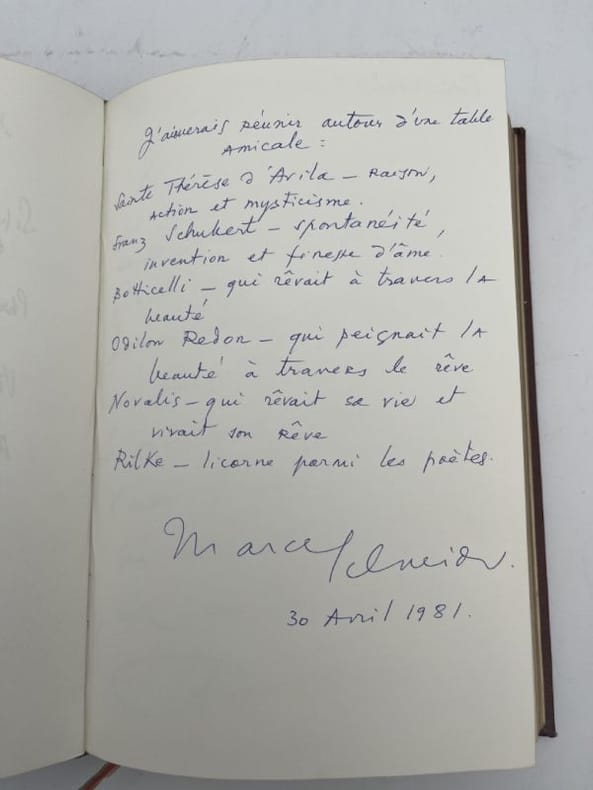 J'aimerais réunir autour d'une table
amicale :
Sainte Thérèse d'Avila – Raison,
action et mysticisme.
Franz Schubert – spontanéité,
invention et finesse d'âme.
Botticelli – qui rêvait à travers la
beauté
Odilon Redon – qui peignait la
beauté à travers le rêve
Novalis – qui rêvait sa vie et
vivait son rêve
Rilke – licorne parmi les poètes.
Marcel Schneider.
30 Avril 1981.